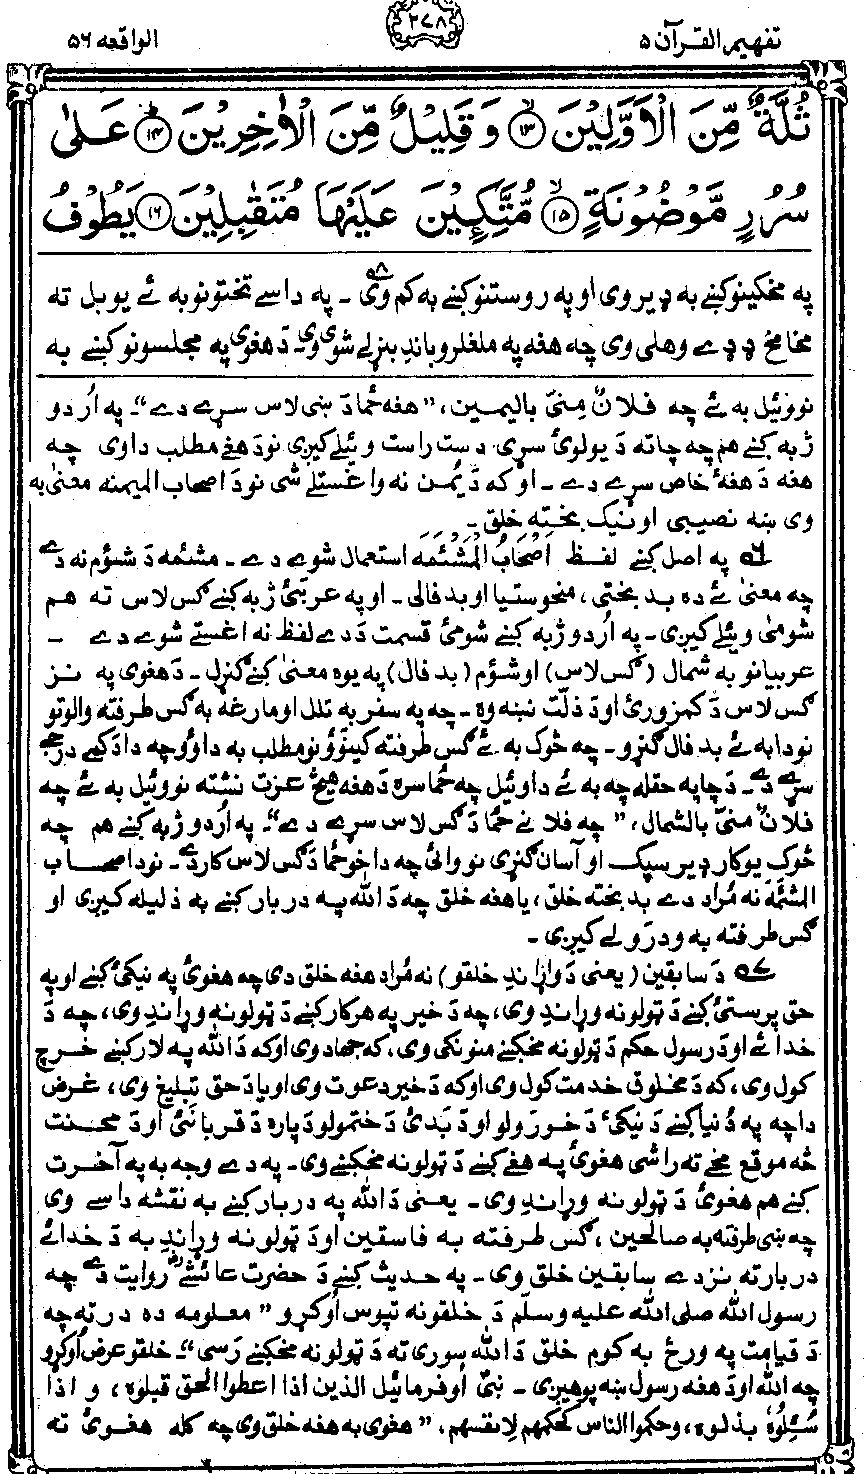 تفهیم القرآن ۵
۲۷۸
الواقعه ۵۶
ثُلَّةٌ مِّنَ الْاَوَّلِيْنَ ۱۳ وَقَلِيْلٌ مِّنَ الْاٰخِرِيْنَ ۱۴ عَلٰى
سُرُرٍ مَّوْضُوْنَةٍ ۱۵ مُّتَّكِـِٕيْنَ عَلَيْهَا مُتَقٰبِلِيْنَ ۱۶ يَطُوْفُ
په مخکینو کښے به ډیر وی او په روستنو کښے به کم وی ۸ـ په داسے تختونو به ئے یو بل ته
مخامخ ډډے وهلی وی چه هغه په ملغلرو باندِ بنړلے شوی وی۔ دَ هغوی په مجلسونو کښے به
نو وئیل به ئے چه فلانٌ مِنیّ بالیمین، ”هغه ځما دَ ښی لاس سړے دے“۔ په اُردو
ژبه کښے هم چه چاته دَ یو لوئ سړی دست راست وئیلے کیږی نو دَ هغے مطلب دا وی چه
هغه دَ هغهٔ خاص سړے دے ۔ او که دَ یُمن نه واغستلے شی نو دَ اصحاب المیمنه معنیٰ به
وی ښه نصیبی او نیک بخته خلق ۔
۶ په اصل کښے لفظ اَصْحَابُ الْمَشْئَمَه استعمال شوے دے ۔ مشئمه دَ شؤم نه دے
چه معنیٰ ئے ده بد بختی، منحوستیا او بد فالی ۔ او په عربئ ژبه کښے ګس لاس ته هم
شومیٰ وئیلے کیږی ۔ په اُردو ژبه کښے شومئ قسمت دَ دے لفظ نه اغستے شوے دے ۔
عربیانو به شمال (ګس لاس) او شؤم (بد فال) په یوه معنیٰ کښے ګنړل ۔ دَ هغوی په نز
ګس لاس دَ کمزورئ او دَ ذلّت نښه وه ۔ چه په سفر به تلل او مارغهٔ به ګس طرفته والوتو
نو دا به ئے بد فال ګنړو ۔ چه څوک به ئے ګس طرفته کینَوؤ نو مطلب به دا وُو چه دا دَ کمے درجے
سړے دے ۔ دَ چا په حقله چه به ئے دا وئیل چه ځما سره دَ هغه هیڅ عزت نشته نو وئیل به ئے چه
فلانٌ منیّ بالشمال، ”چه فلانے ځما دَ ګس لاس سړے دے“۔ په اُردو ژبه کښے هم چه
څوک یو کار ډیر سپک او آسان ګنړی نو وائی چه دا خو ځما دَ ګس لاس کار دے ۔ نو دا صحاب
المشئمة نه مُراد دے بد بخته خلق، یا هغه خلق چه دَ الله په دربار کښے به ذلیله کیږی او
ګس طرفته به ودرَولے کیږی ۔
۷ دَ سابقین (یعنی دَ وړاندِ خلقو) نه مُراد هغه خلق دی چه هغوئ په نیکئ کښے او په
حق پرستئ کښے دَ ټولو نه وړاندِ وی، چه دَ خیر په هر کار کښے دَ ټولو نه وړاندِ وی، چه دَ
خدائے او دَ رسول حکم دَ ټولو نه مخکښے منونکی وی، که جهاد وی او که دَ الله په لار کښے خرچ
کول وی، که دَ مخلوق خدمت کول وی او که دَ خیر دعوت وی او یا دَ حق تبلیغ وی، غرض
دا چه په دُنیا کښے دَ نیکئ دَ خورَولو او دَ بَدئ دَ ختمولو دَ پاره دَ قربانئ او دَ محنت
څه موقع مخے ته راشی هغوئ په هغے کښے دَ ټولو نه مخکښے وی ۔ په دے وجه به په آخرت
کښے هم هغوئ دَ ټولو نه وړاندِ وی ۔ یعنی دَ الله په دربار کښے به نقشه داسے وی
چه ښی طرفته به صالحین، ګس طرفته به فاسقین او دَ ټولو نه وړاندِ به دَ خدائے
دربار ته نزدے سابقین خلق وی ۔ په حدیث کښے دَ حضرت عائشے ؓ روایت دے چه
رسول الله صلی الله علیه وسلّم دَ خلقو نه تپوس اُوکړو ”معلومه ده درته چه
دَ قیامت په ورځ به کوم خلق دَ الله سوری ته دَ ټولو نه مخکښے رَسی“۔ خلقو عرض اُوکړو
چه الله او دَ هغه رسول ښه پوهیږی ۔ نبیؐ اوفرمائیل الذین اذا اعطوا الحق قبلوه، و اذا
سُئِلُوهُ بذلوه، وحکموا الناس کحکمهم لانفسهم، ”هغوی به هغه خلق وی چه کله هغوئ ته